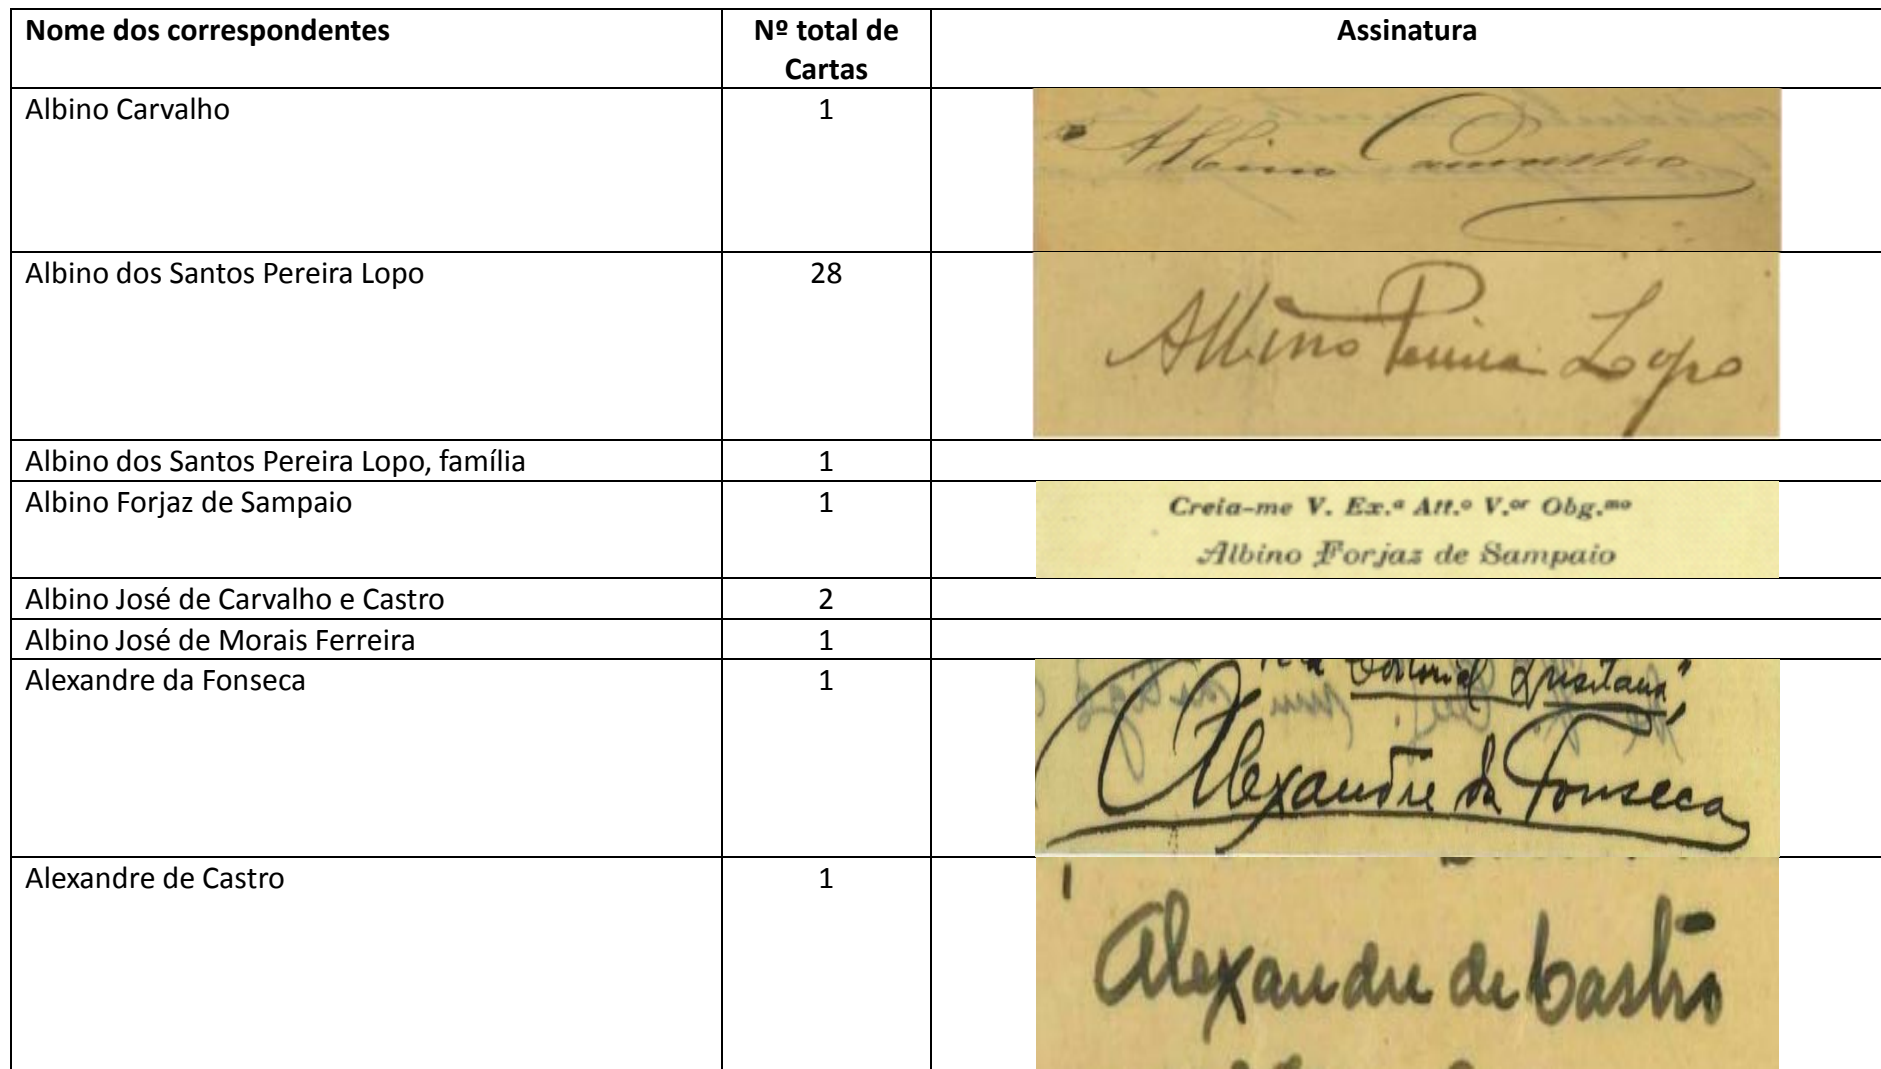 Nome dos correspondentes Nº total de Cartas Assinatura
Albino Carvalho 1
Albino
Albino dos Santos Pereira Lopo 28
Albino Pereira Lopo
Albino dos Santos Pereira Lopo, família 1
Albino Forjaz de Sampaio 1
Creia-me V. Ex.ª Att.º V.or Obg.mo
Albino Forjaz de Sampaio
Albino José de Carvalho e Castro 2
Albino José de Morais Ferreira 1
Alexandre da Fonseca 1
Colonial Lusitana"
Alexandre da Fonseca
Alexandre de Castro 1
Alexandre de Castro